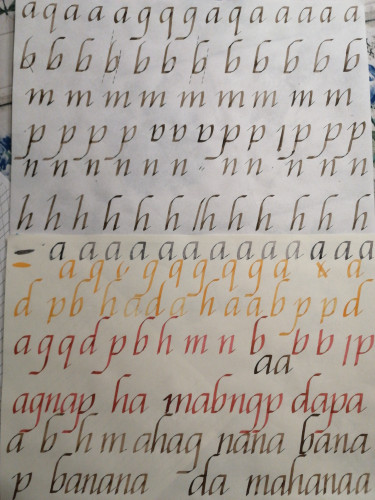 a q a a a g g g a q a a a a a
b b b b b b b b b b b b
m m m m m m m m m m
p p p p v v v p p l p p p
n n n n n n n n n n n n
h h h h h h lh h h h h h
a a a a a a a a a a a a a
a q g g g g g a a
d p b h a d a h a a b p p d
a g q d p b h m n b b b l p
a a
agnap ha mabngp dapa
a b h m ahag nana bana
p banana da mahanaa